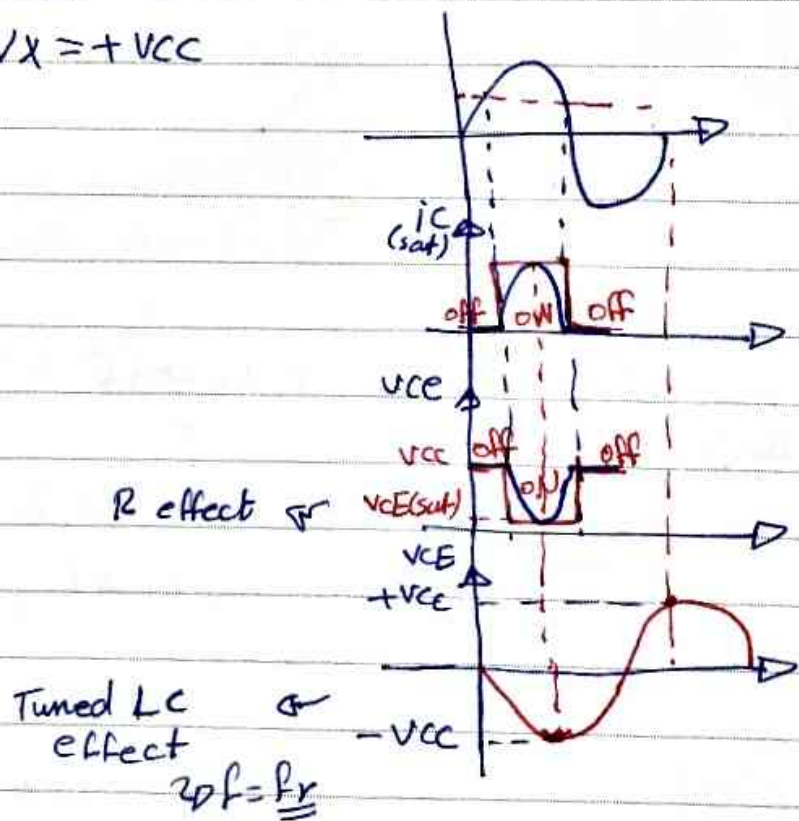 Vx = + VCC
ic
(sat)
off ON off
VCE
VCC off ON off
R effect VCE(sat)
VCE
+VCC
Tuned LC
effect
-VCC
if = fr